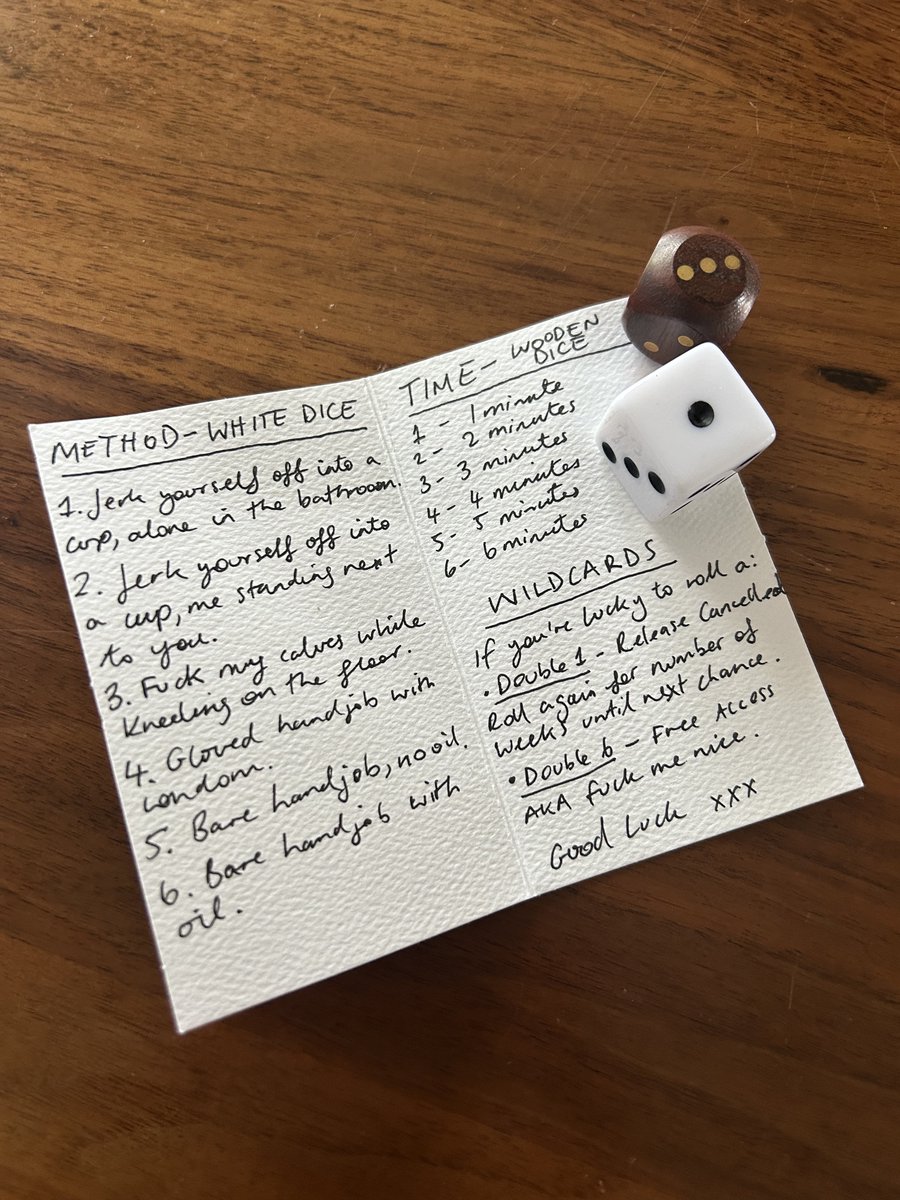 METHOD - WHITE DICE
1. Jerk yourself off into a
cup, alone in the bathroom.
2. Jerk yourself off into
a cup, me standing next
to you.
3. Fuck my calves while
kneeling on the floor.
4. Gloved handjob with
condom.
5. Bare handjob, no oil.
6. Bare handjob with
oil.
TIME - WOODEN
DICE
1 - 1 minute
2 - 2 minutes
3 - 3 minutes
4 - 4 minutes
5 - 5 minutes
6 - 6 minutes
WILDCARDS
If you're lucky to roll a:
• Double 1 - Release Cancelled
Roll again for number of
weeks until next chance.
• Double 6 - Free Access
AKA fuck me nice.
Good Luck xxx